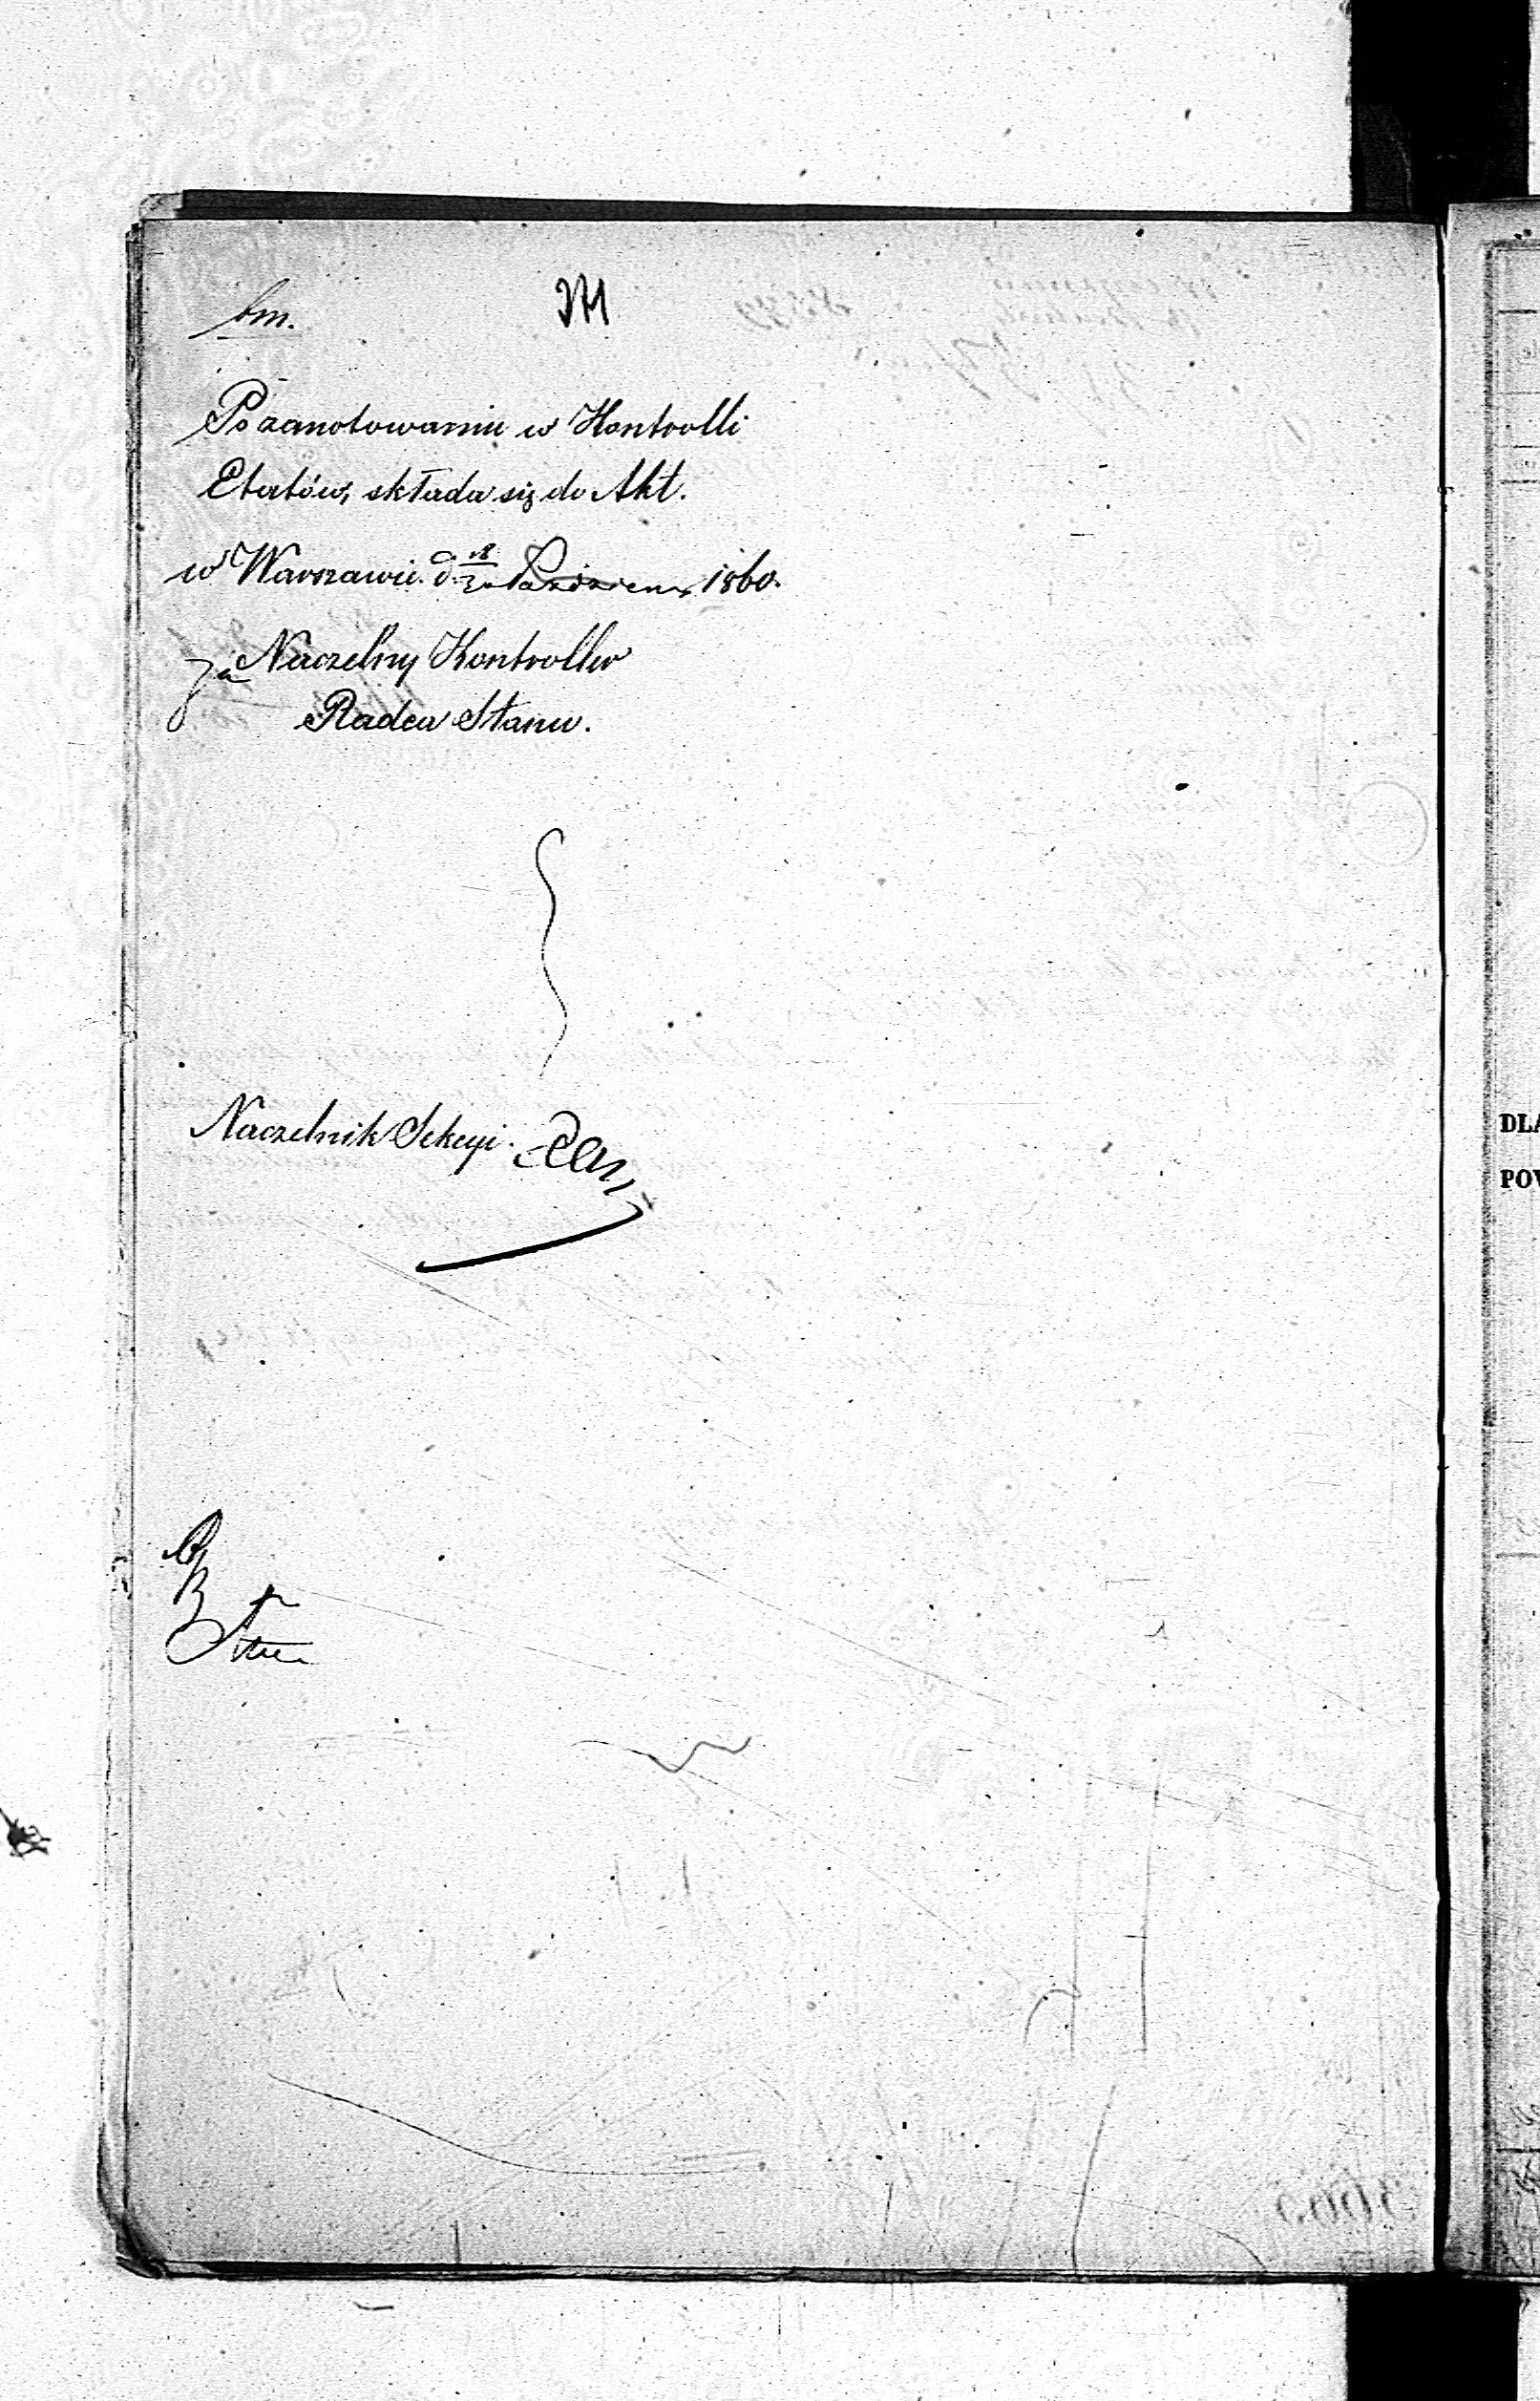 bm.
371
Po zanotowaniu w Kontrolli
Etatów, składa się do Akt.
w Warszawie. d. 18/30 Październ. 1860.
za Naczelny Kontroller
Radca Stanu.
Naczelnik Sekcyi.
DLA
POW